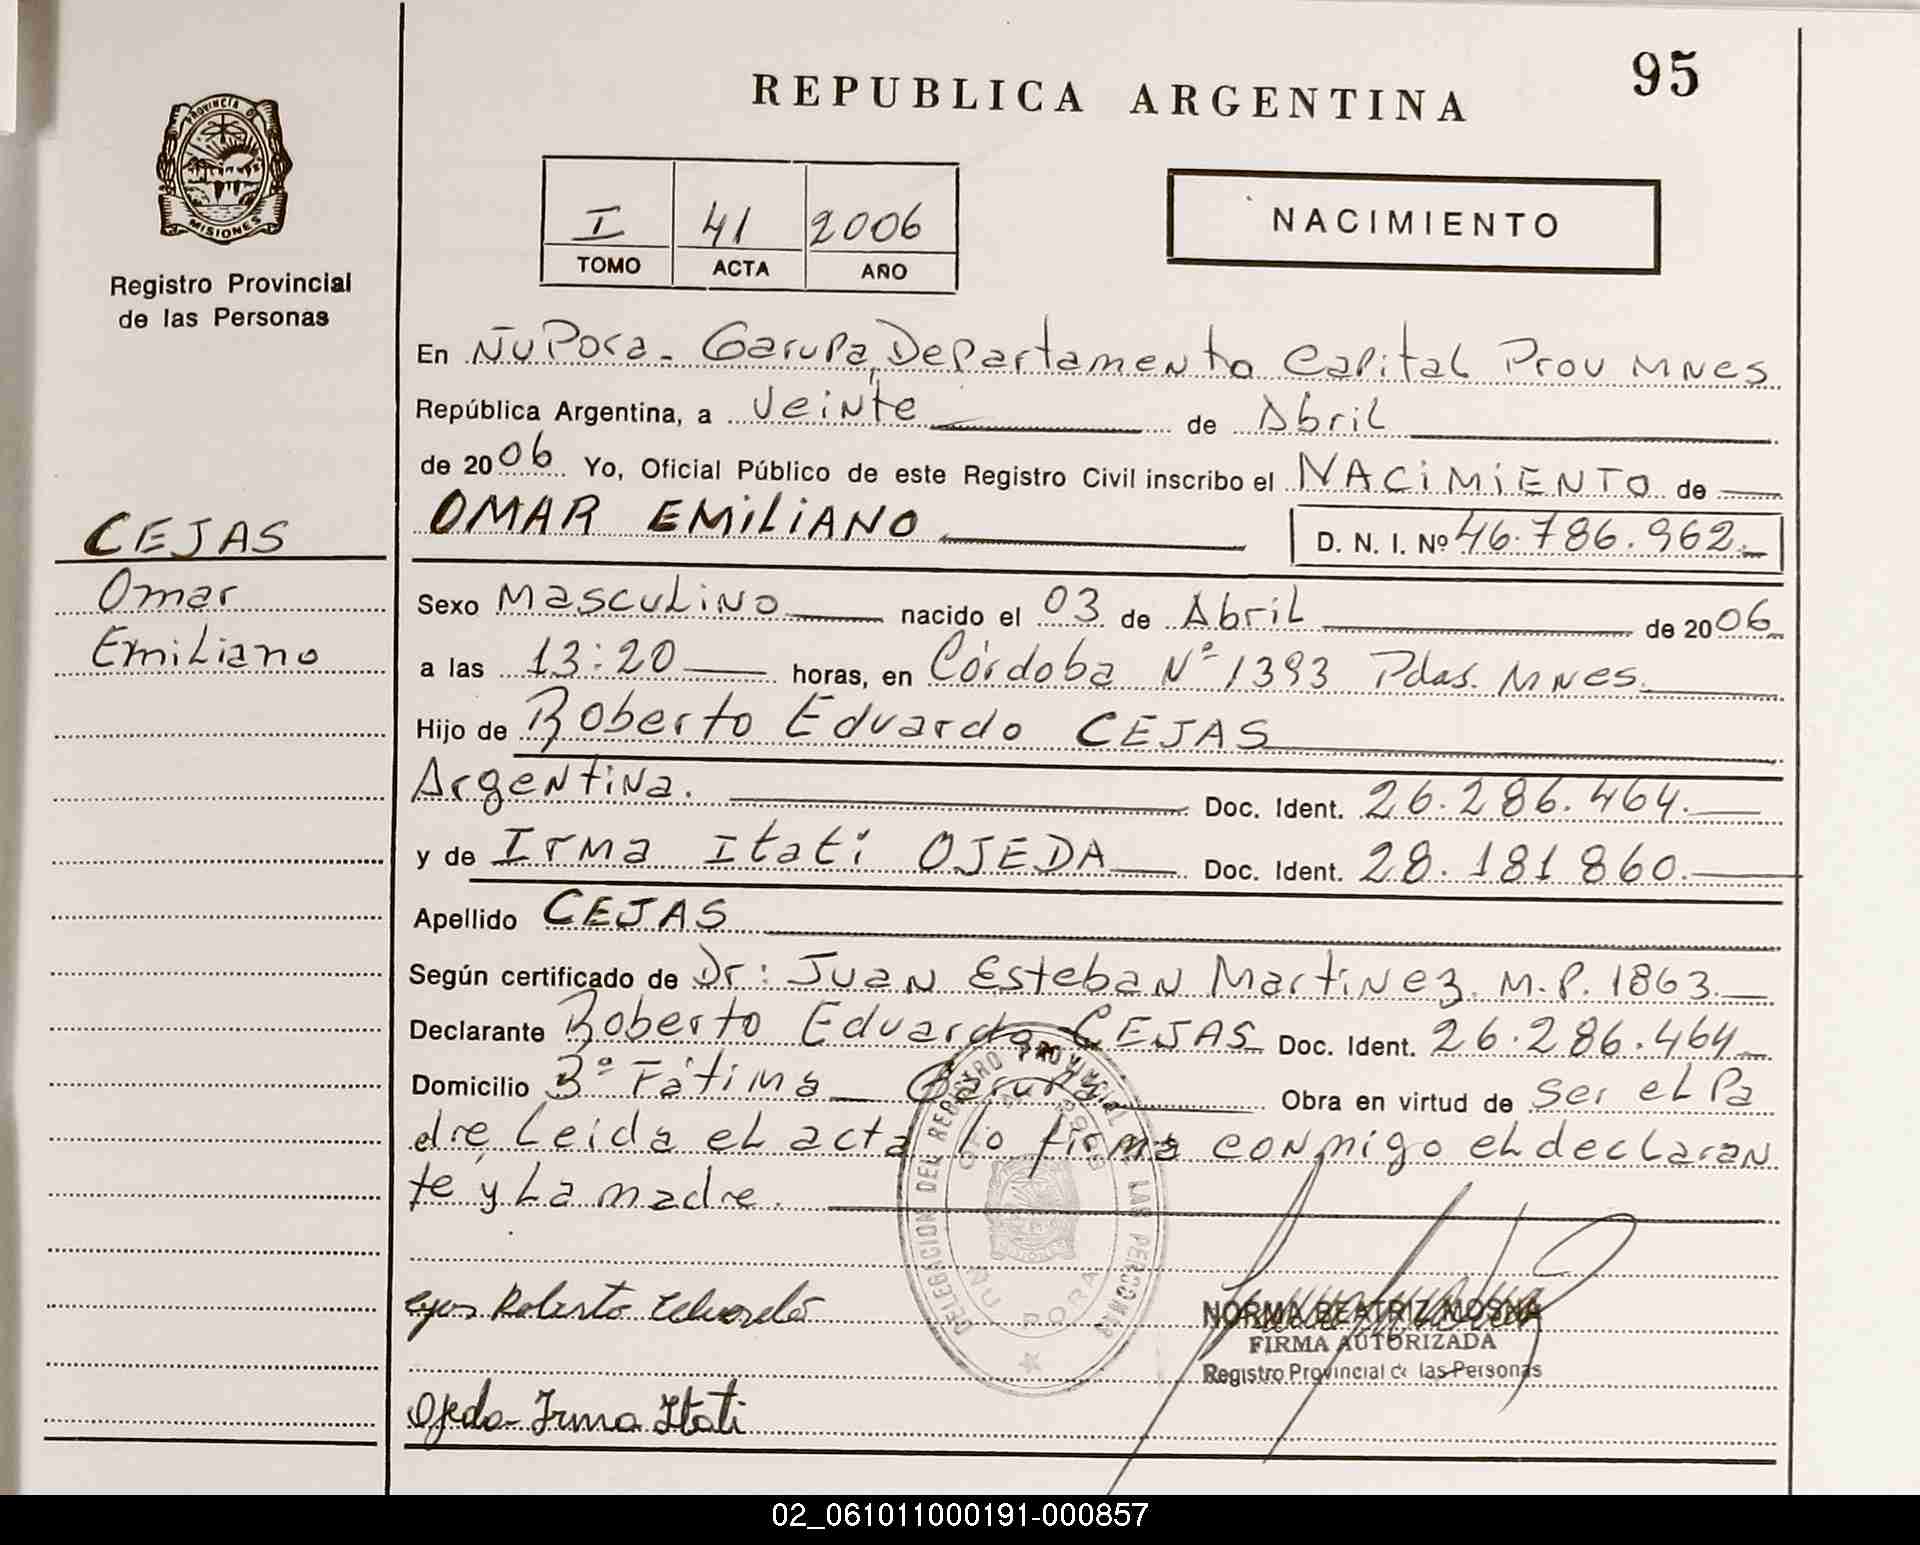 95
REPUBLICA ARGENTINA
PROVINCIA D
MISIONES
Registro Provincial
de las Personas
I 41 2006
TOMO ACTA AÑO
NACIMIENTO
En Ñu Pora - Garupa, Departamento Capital Prov Mnes
República Argentina, a Veinte de Abril
de 2006 Yo, Oficial Público de este Registro Civil inscribo el NACIMIENTO de
OMAR EMILIANO D. N. I. Nº 46.786.962.
CEJAS
Omar
Emiliano
Sexo Masculino nacido el 03 de Abril de 2006
a las 13:20 horas, en Córdoba Nº 1393 Pdas. Mnes.
Hijo de Roberto Eduardo CEJAS
Argentina. Doc. Ident. 26.286.464.
y de Irma Itati OJEDA Doc. Ident. 28.181860.
Apellido CEJAS
Según certificado de Dr: Juan Esteban Martinez. M.P. 1863.
Declarante Roberto Eduardo CEJAS Doc. Ident. 26.286.464
Domicilio Bº Fátima Garupa. Obra en virtud de Ser el Pa
dre, Leida el acta lo firma conmigo el declaran
te y La madre.
DELEGACION DEL REGISTRO PROVINCIAL DE LAS PERSONAS
ÑU PORA
Roberto Eduardo
NORMA BEATRIZ MOSNA
FIRMA AUTORIZADA
Registro Provincial de las Personas
Ojeda Irma Itati
02_061011000191-000857